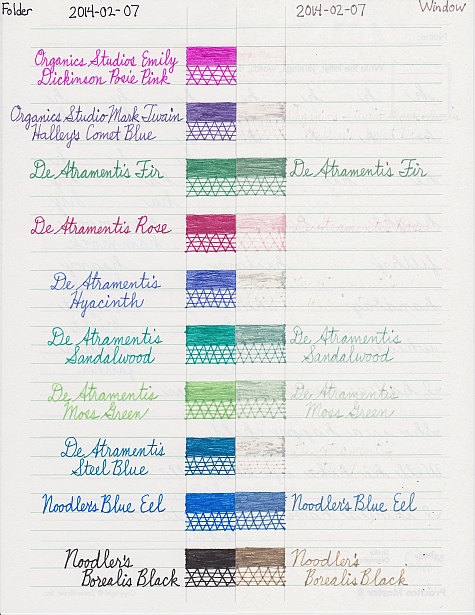 Folder 2014-02-07 2014-02-07 Window
Organics Studios Emily
Dickinson Posie Pink
Organics Studio Mark Twain
Halley's Comet Blue
De Atramentis Fir De Atramentis Fir
De Atramentis Rose De Atramentis Rose
De Atramentis
Hyacinth
De Atramentis De Atramentis
Sandalwood Sandalwood
De Atramentis De Atramentis
Moss Green Moss Green
De Atramentis
Steel Blue
Noodler's Blue Eel Noodler's Blue Eel
Noodler's Noodler's
Borealis Black Borealis Black